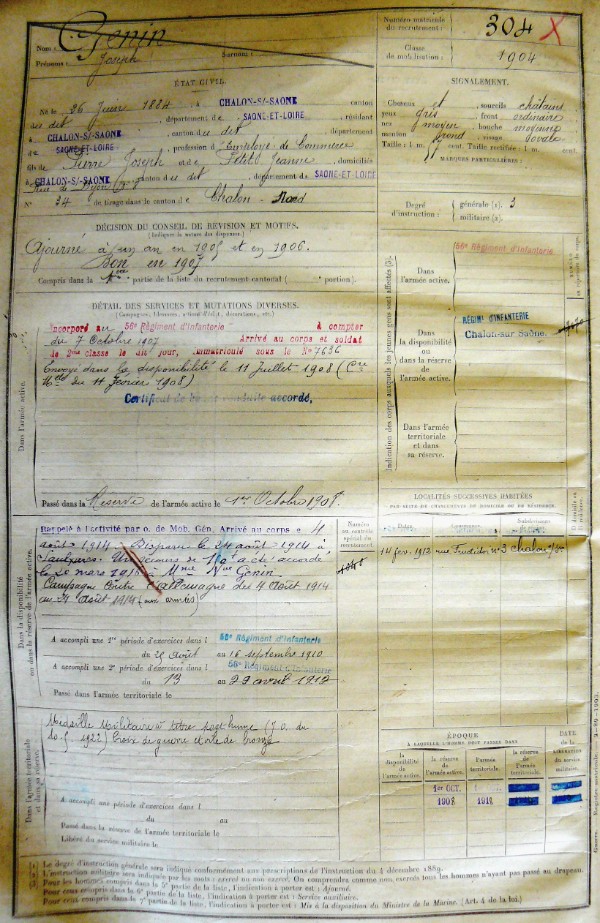 Nom : Genin
Prénoms : Joseph Surnom :
Numéro matricule du recrutement : 304 X
Classe de mobilisation : 1904
ÉTAT CIVIL.
Né le 26 Juin 1884, à CHALON-S/-SAONE canton
du dit, département de SAONE-ET-LOIRE, résidant
à CHALON-S/-SAONE, canton du dit, département
de SAONE-ET-LOIRE, profession d'Employé de Commerce
fils de Pierre Joseph et de Jeanne, domiciliés
à CHALON-S/-SAONE canton du dit, département de SAONE-ET-LOIRE
N° 34 de tirage dans le canton de Chalon - Nord
SIGNALEMENT.
Cheveux et sourcils châtains
yeux gris, front ordinaire
nez moyen, bouche moyenne
menton rond, visage ovale
Taille : 1 m. cent. Taille rectifiée : 1 m. cent.
MARQUES PARTICULIÈRES :
Degré d'instruction : générale (1). 3
militaire (2).
DÉCISION DU CONSEIL DE RÉVISION ET MOTIFS.
(Indiquer la nature des dispenses.)
Ajourné à un an en 1905 et en 1906.
Bon en 1907
Compris dans la partie de la liste du recrutement cantonal ( portion).
DÉTAIL DES SERVICES ET MUTATIONS DIVERSES.
(Campagnes, blessures, actions d'éclat, décorations, etc.)
Incorporé au 56e Régiment d'Infanterie à compter
du 7 Octobre 1907 Arrivé au corps et soldat
de 2me classe le dit jour, immatriculé sous le No 7636
Envoyé dans la disponibilité le 11 Juillet 1908 (Cre
Mlle du 11 février 1908)
Certificat de bonne conduite accordé,
Dans l'armée active.
Passé dans la Réserve de l'armée active le 1er Octobre 1908
Indication des corps auxquels les jeunes gens sont affectés
Dans l'armée active.
56e Régiment d'Infanterie
Dans la disponibilité ou dans la réserve de l'armée active.
RÉGIMt D'INFANTERIE
Chalon-sur Saône.
Dans l'armée territoriale et dans sa réserve.
Dans la disponibilité ou dans la réserve de l'armée active.
Rappelé à l'activité par o. de Mob. Gén. Arrivé au corps le 4
août 1914. Disparu le 24 août 1914 à
Un secours de 150f a été accordé
le 20 mars 1915 à Mme Vve Genin.
Campagne contre l'Allemagne des 4 Août 1914
au 24 Août 1914 (aux armées)
A accompli une 1re période d'exercices dans l 56e Régiment d'Infanterie
du 25 août au 16 septembre 1910
A accompli une 2e période d'exercices dans l 56e Régiment d'Infanterie
du 13 au 29 avril 1912
Passé dans l'armée territoriale le
Numéro au contrôle spécial du recrutement.
LOCALITÉS SUCCESSIVES HABITÉES
PAR SUITE DE CHANGEMENT DE DOMICILE OU DE RÉSIDENCE.
14 fév. 1912 rue n° 3 Chalon s/S
Dans l'armée territoriale et dans sa réserve.
Médaille Militaire à titre posthume (J.O. du
Croix de guerre étoile de bronze
A accompli une période d'exercices dans l
du au
Passé dans la réserve de l'armée territoriale le
Libéré du service militaire le
ÉPOQUE
À LAQUELLE L'HOMME DOIT PASSER DANS
DATE de la LIBÉRATION du service militaire.
la disponibilité de l'armée active.
la réserve de l'armée active.
l'armée territoriale.
la réserve de l'armée territoriale.
1er OCT.
1908 1918
Le degré d'instruction générale sera indiqué conformément aux prescriptions de l'instruction du 4 décembre 1889.
L'instruction militaire sera indiquée par les mots : exercé ou non exercé. On comprendra comme non exercés tous les hommes n'ayant pas passé au drapeau.
Pour les hommes compris dans la 5e partie de la liste, l'indication à porter est : Ajourné.
Pour ceux compris dans la 6e partie de la liste, l'indication à porter est : Service auxiliaire.
Pour ceux compris dans la 7e partie de la liste, l'indication à porter est : Mis à la disposition du Ministre de la Marine. (Art. 4 de la loi.)